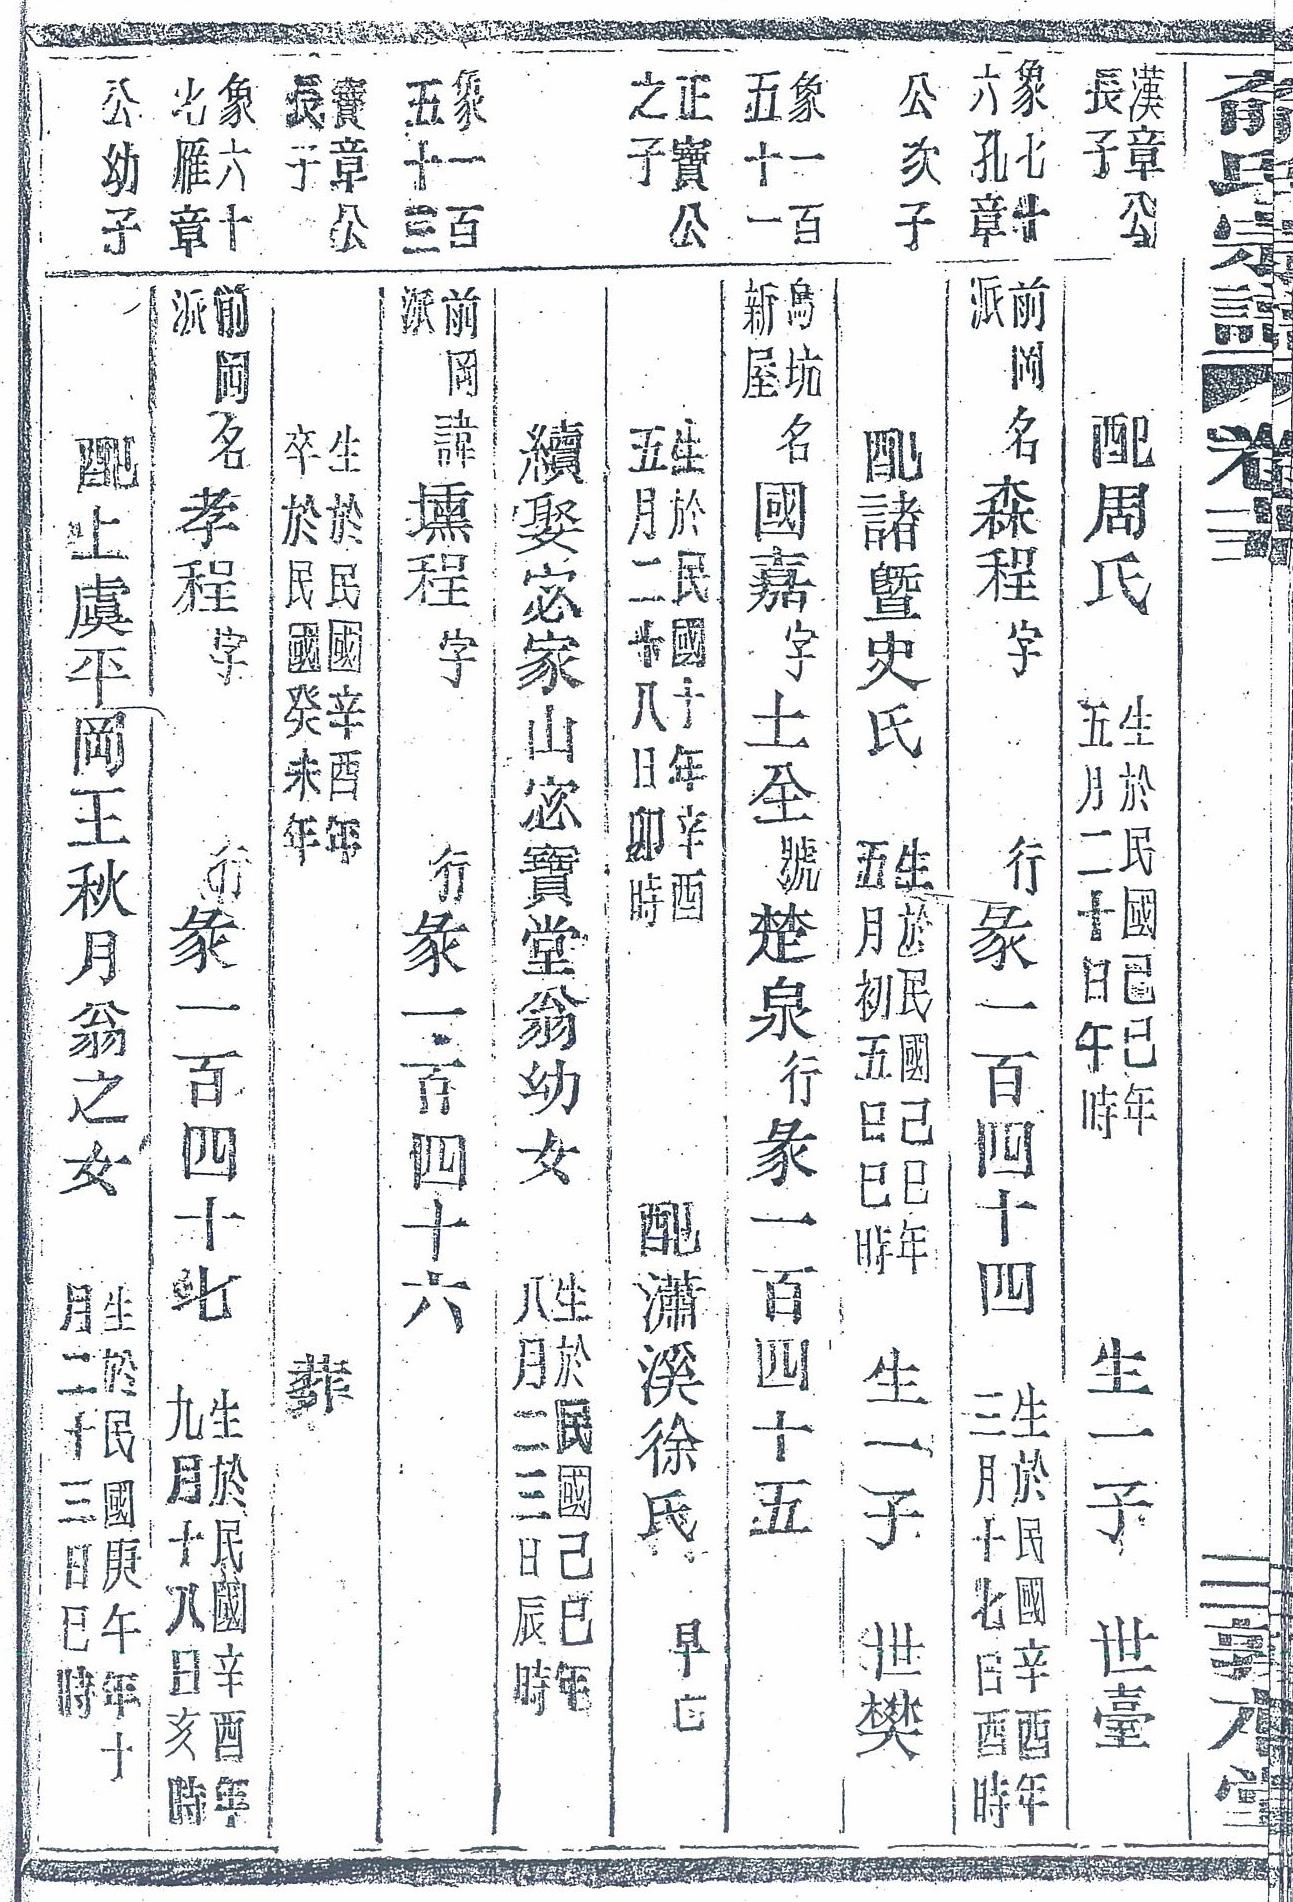 俞氏宗譜 卷三
漢章公長子
配周氏 生於民國己巳年五月二十日午時 生一子 世臺
象七十六孔章
前岡派 名森程字 行彖一百四十四 生於民國辛酉年三月十七日酉時
公次子
配諸暨史氏 生於民國己巳年五月初五日巳時 生一子 世樊
象一百五十一
烏坑新屋 名國嘉字土全號楚泉行彖一百四十五
正寶公之子
生於民國十年辛酉五月二十八日卯時 配瀟溪徐氏 早亡
續娶宓家山宓寶堂翁幼女 生於民國己巳年八月二三日辰時
象一百五十三
前岡派 諱壎程字 行彖一百四十六
寶章公長子
生於民國辛酉年卒於民國癸未年 葬
象六十七雁章
前岡派 名孝程字 行彖一百四十七 生於民國辛酉年九月十八日亥時
公幼子
配上虞平岡王秋月翁之女 生於民國庚午年十月二十三日巳時